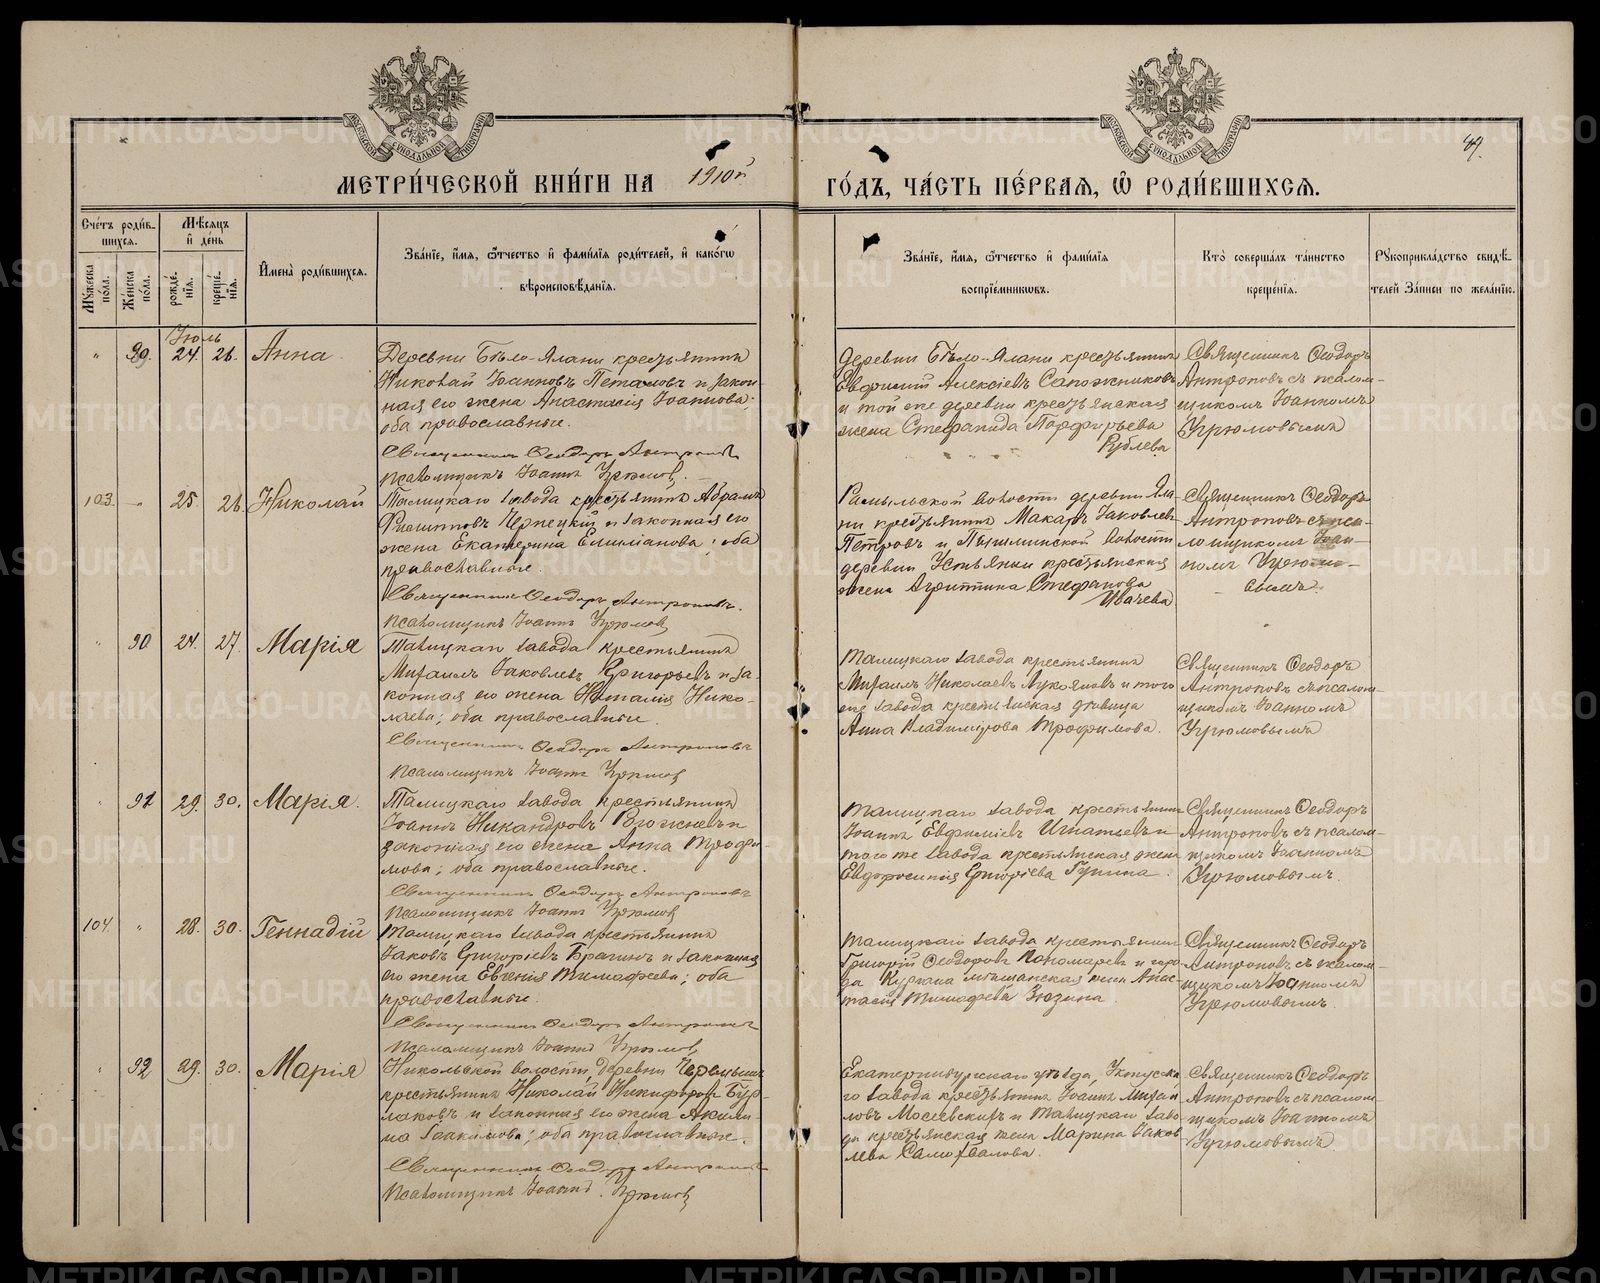 МЕТРИ́ЧЕСКОЙ КНИ́ГИ НА 1910й ГО́ДЪ, ЧА́СТЬ ПЕ́РВАЯ, Ѡ҆ РОДИ́ВШИХСЯ.
49.
Сче́тъ роди́в-
шихся.
Мѣ́сяцъ
и҆ де́нь
Мꙋ́жеска по́ла.
Же́нска по́ла.
рожде́нїѧ.
креще́нїѧ.
И҆мена̀ роди́вшихся.
Зва́нїе, и҆́мя, ѻ҆́тчество и҆ фами́лїя роди́телей, и҆ како́гѡ
вѣроисповѣ́данїя.
Зва́нїе, и҆́мя, ѻ҆́тчество и҆ фами́лїя
воспрїе́мникѡвъ.
Кто̀ соверша́лъ та́инство
креще́нїя.
Рꙋкоприкла́дство свидѣ́-
телей за́писи по жела́нїю.
Іюль
" 89. 24. 26. Анна.
Деревни Бѣло-Элани крестьянинъ
Николай Іоанновъ и закон-
ная его жена Анастасія Іоаннова;
оба православные.
Священникъ Ѳеодоръ Антроповъ
Псаломщикъ Іоаннъ Угрюмовъ.
Деревни Бѣло-Элани крестьянинъ
Евфимій Алексіевъ Сапожниковъ
и той же деревни крестьянская
жена Стефанида Порфирьева
Рублева
Священникъ Ѳеодоръ
Антроповъ съ псалом-
щикомъ Іоанномъ
Угрюмовымъ
103. " 25. 26. Николай
Талицкаго завода крестьянинъ Абрамъ
Филипповъ Чернецкій и законная его
жена Екатерина Емиліанова; оба
православные.
Священникъ Ѳеодоръ Антроповъ.
Псаломщикъ Іоаннъ Угрюмовъ
волости деревни Эла-
ни крестьянинъ Макаръ Іаковлевъ
Петровъ и Пышминской волости
деревни Устьянки крестьянская
жена Агриппина Стефанова
Ивачева
Священникъ Ѳеодоръ
Антроповъ съ пса-
ломщикомъ Іоан-
номъ Угрюмо-
вымъ.
" 90 24. 27. Марія
Талицкаго завода крестьянинъ
Михаилъ Іаковлевъ Григорьевъ и за-
конная его жена Наталія Нико-
лаева; оба православные.
Священникъ Ѳеодоръ Антроповъ
Псаломщикъ Іоаннъ Угрюмовъ
Талицкаго завода крестьянинъ
Михаилъ Николаевъ Лукояновъ и того
же завода крестьянская дѣвица
Анна Владимірова Трофимова.
Священникъ Ѳеодоръ
Антроповъ съ псалом-
щикомъ Іоанномъ
Угрюмовымъ
" 91 29. 30. Марія.
Талицкаго завода крестьянинъ
Іоаннъ Никандровъ и
законная его жена Анна Трофи-
мова; оба православные.
Священникъ Ѳеодоръ Антроповъ
Псаломщикъ Іоаннъ Угрюмовъ
Талицкаго завода крестьянинъ
Іоаннъ Евфиміевъ Игнатьевъ и
того же завода крестьянская жена
Евдоросинія Григоріева Гупина.
Священникъ Ѳеодоръ
Антроповъ съ псалом-
щикомъ Іоанномъ
Угрюмовымъ.
104. " 28. 30. Геннадій
Талицкаго завода крестьянинъ
Іаковъ Григоріевъ Брагинъ и законная
его жена Евгенія Тимофеева; оба
православные.
Священникъ Ѳеодоръ Антроповъ
Псаломщикъ Іоаннъ Угрюмовъ
Талицкаго завода крестьянинъ
Григорій Ѳеодоровъ Пономаревъ и горо-
да Кургана мѣщанская жена Анас-
тасія Тимофеева Зюзина.
Священникъ Ѳеодоръ
Антроповъ съ псалом-
щикомъ Іоанномъ
Угрюмовымъ.
" 92 29. 30. Марія
Никольской волости, деревни
крестьянинъ Николай Никифоровъ Бур-
лаковъ и законная его жена Акили-
на Іоакимова; оба православные.
Священникъ Ѳеодоръ Антроповъ
Псаломщикъ Іоаннъ Угрюмовъ
Екатеринбургскаго уѣзда, Уктусска-
го завода крестьянинъ Іоаннъ Михаи-
ловъ и Талицкаго заво-
да крестьянская жена Марина Іаков-
лева Самохвалова.
Священникъ Ѳеодоръ
Антроповъ съ псалом-
щикомъ Іоанномъ
Угрюмовымъ.
METRIKI.GASO-URAL.RU